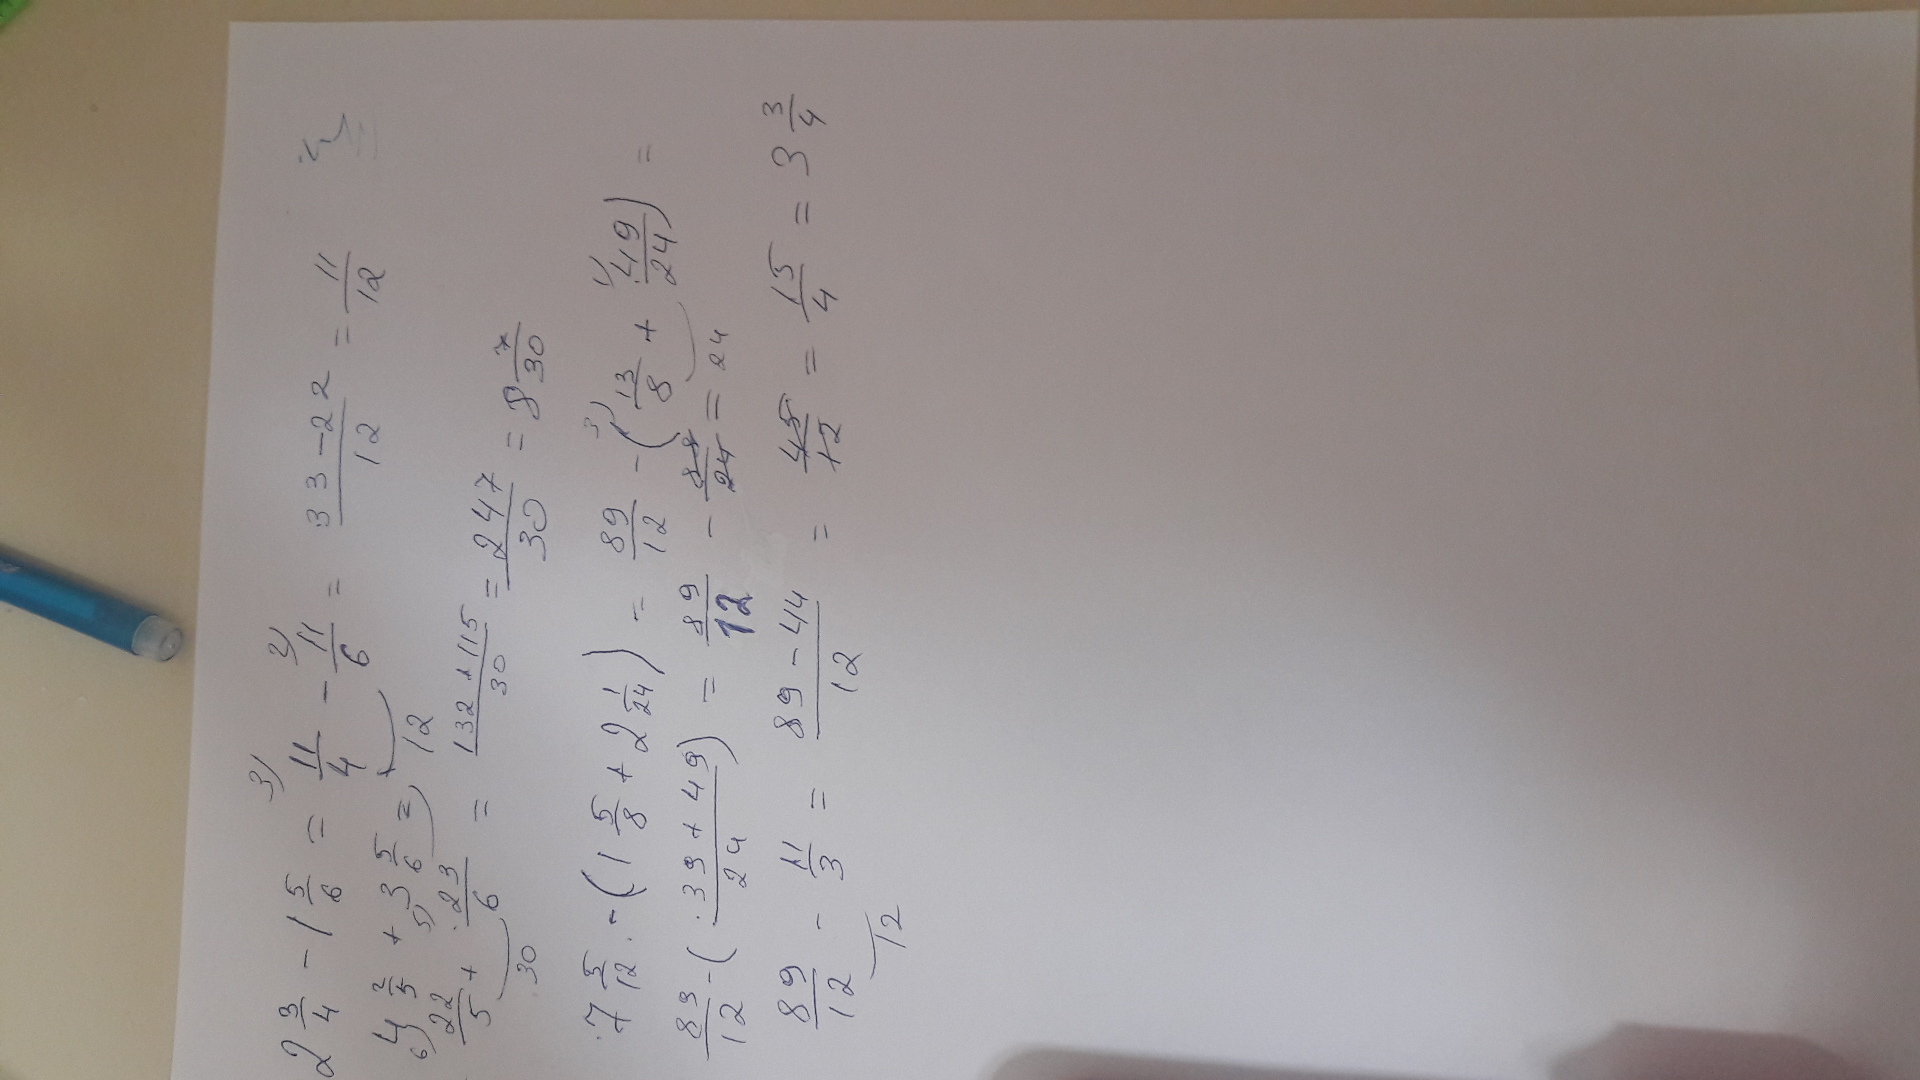 3) 2)
2 3/4 - 1 5/6 = 11/4 - 11/6 = (33-22)/12 = 11/12
12
4 2/5 + 3 5/6 =
6) 5)
22/5 + 23/6 = (132+115)/30 = 247/30 = 8 7/30
30
3) 1)
7 5/12 - (1 5/8 + 2 1/24) = 89/12 - (13/8 + 49/24) =
24
89/12 - (39+49)/24) = 89/12 - 88/24 =
89/12 - 11/3 = (89-44)/12 = 45/12 = 15/4 = 3 3/4
12